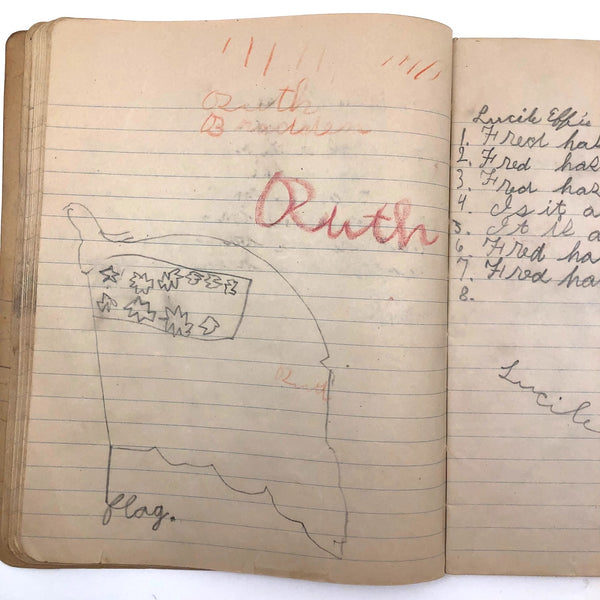 Ruth
Ruth
Ruth
flag.
Lucile Effie
1. Fred has
2. Fred has
3. Fred has
4. Is it a
5. It is a
6 Fred ha
7. Fred ha
8.
Lucile